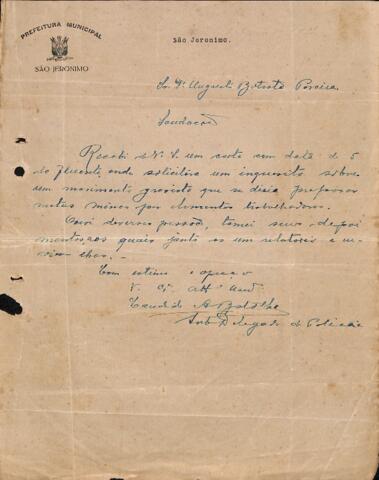 PREFEITURA MUNICIPAL
SÃO JERONIMO
São Jeronimo.
Snr. Dr. Augusto Batista Pereira
Saudações
Recebi de V. S. uma carta com data de 5
do fluente, onde solicitava um inquerito sobre
um movimento grevista que se dizia preparar
nestas minas por elementos trabalhadores.
Ouvi diversas pessôas, tomei seus depoi
mentos, aos quais junto os um relatorio e
lhes. -
Com estima e apreço
V. S. Att°
A Botelho
Sub Delegado de Policia